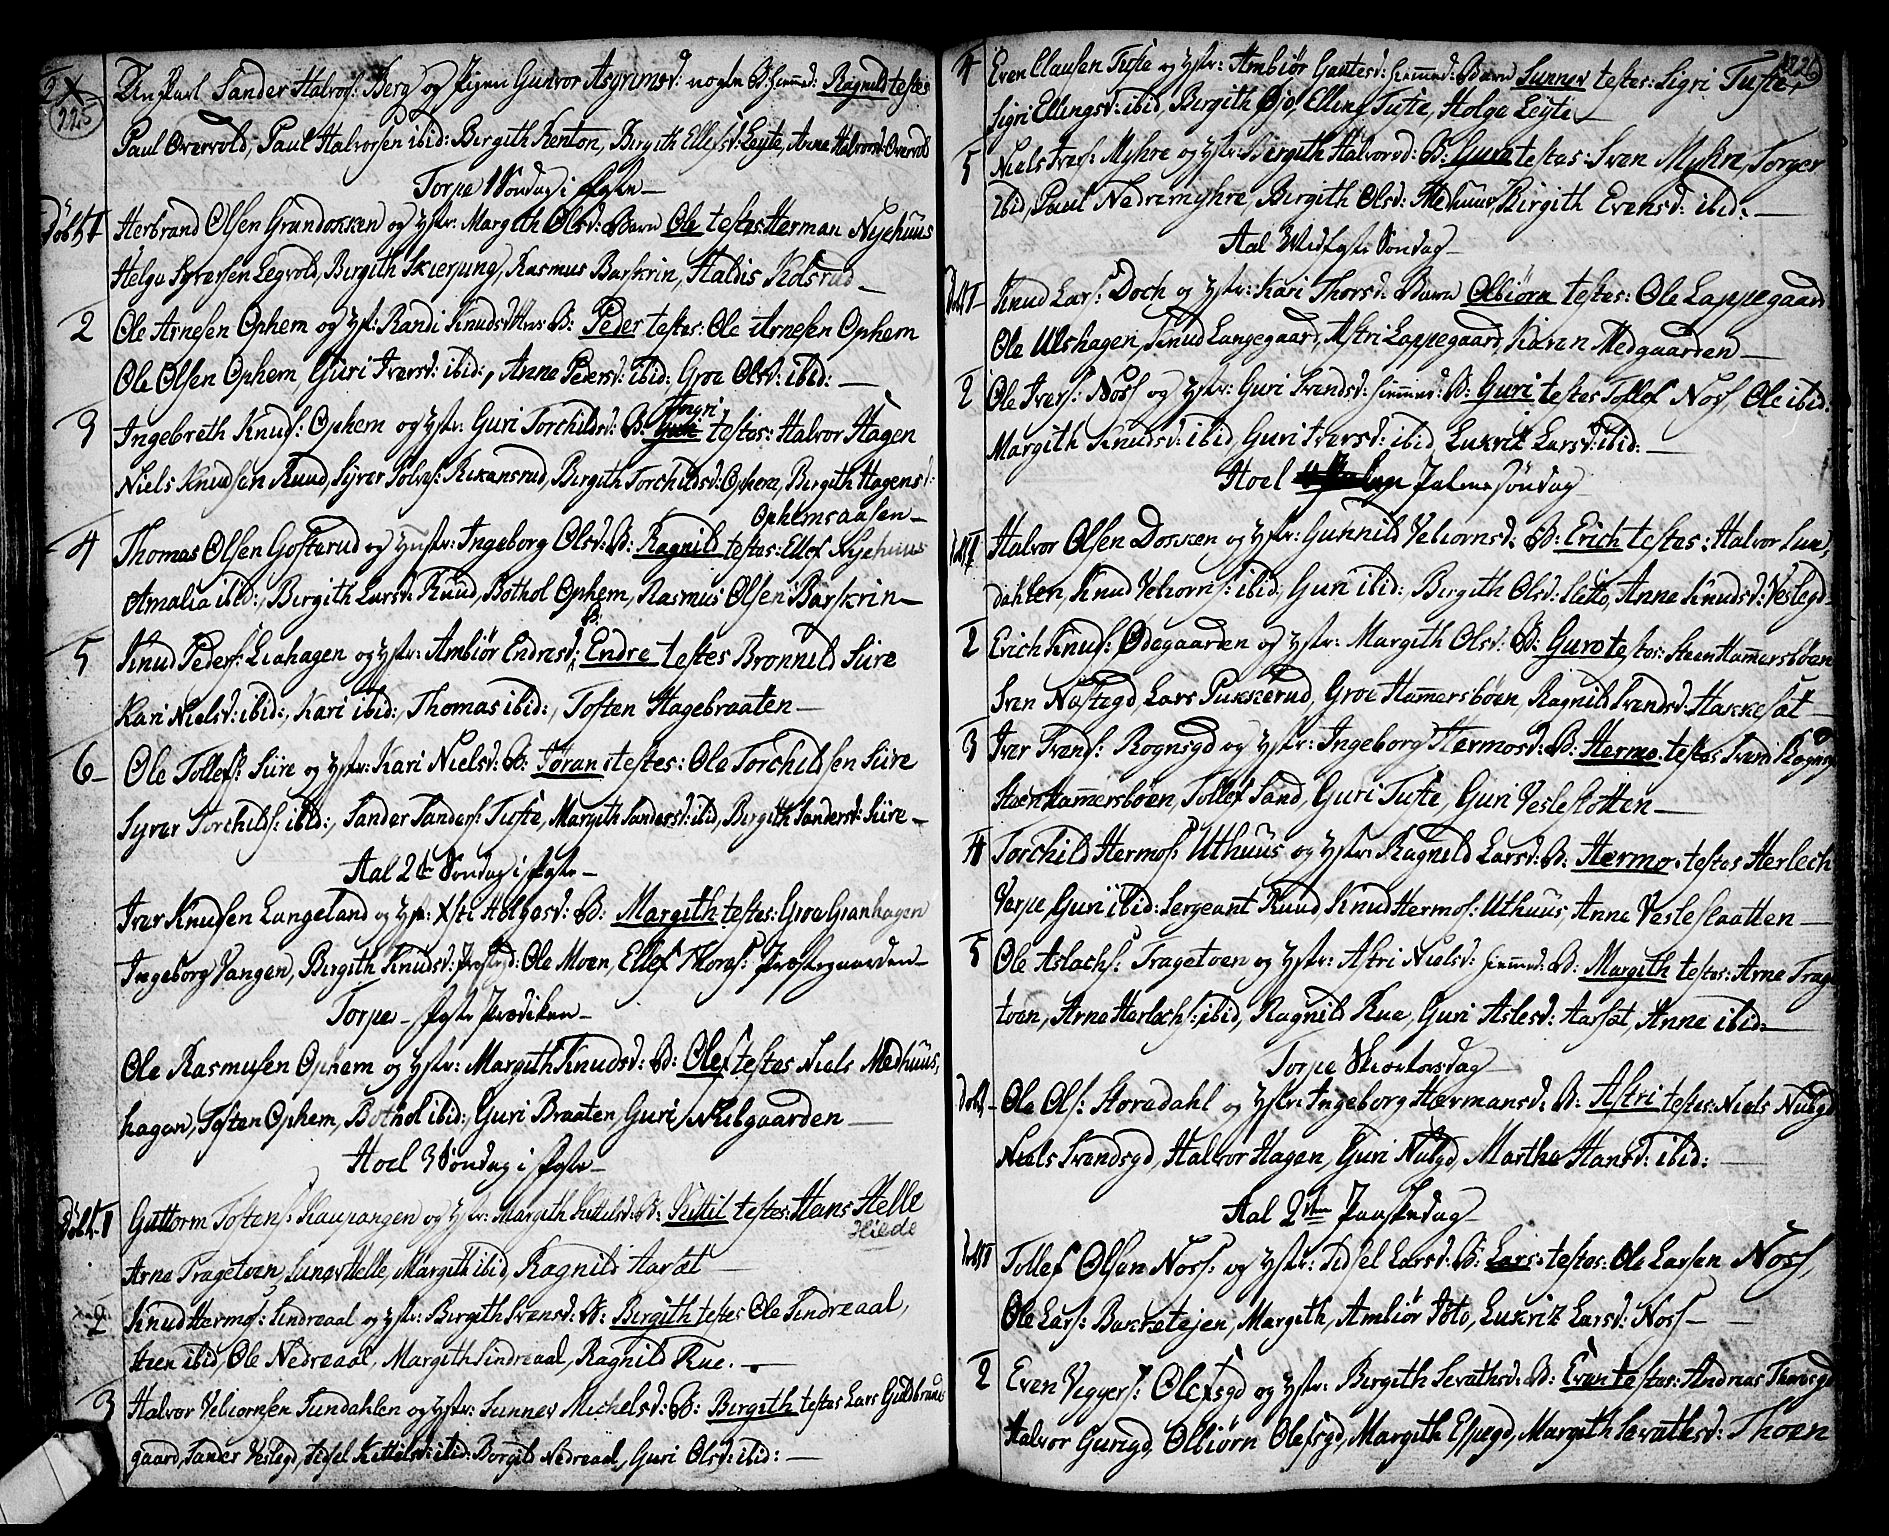 2 X
225
Ungkarl Sander Halvors: Berg og Pigen Gunvor Asgrimsd: uægte B: hiemmed: Ragnild testes
Paul Overvold, Paul Halvorsen ibid: Birgith Kenton, Birgith Ellefsd: Leyte, Anne Halvorsd: Overvold
Torpe 1 Søndag i faste
Døbt 1 Herbrand Olsen Grandokken og hstr: Margith Olsd: Barn Ole testes: Herman Nyehuus
Helge Syversen Legvold, Birgith Skierping, Rasmus Barskrin, Haldis Kolsrud
2 Ole Arnesen Ophem og hstr: Randi Knudsd: B: Peder testes: Ole Arnesen Ophem
Ole Olsen Ophem, Guri Iversd: ibid:, Anne Pedersd: ibid: Groe Olsd: ibid:
3 Ingebreth Knuds: Ophem og hstr: Guri Torchildsd: B: Guri testes: Halvor Hagen
Niels Knudsen Ruud, Syver Rekansrud, Birgith Torchildsd: Ophem, Birgith Hagensd:
Ophemsaasen
4 Thomas Olsen Gosterud og hustr: Ingeborg Olsd: B: Ragnild testes: Ellef Nyehuus
Amalia ibid:, Birgith Larsd: Ruud, Bothol Ophem, Rasmus Olsen Barskrin
5 Knud Peders: Liahagen og hstr: Ambiør Endresd: B: Endre testes Bronnild Siire
Kari Nielsd: ibid:, Kari ibid:, Thomas ibid:, Tosten Hagebraaten
6 Ole Tollefs: Siire og hstr: Kari Nielsd: B: Jøran testes: Ole Torchildsen Siire
Syver Torchilds: ibid:, Sander Sanders: Tufte, Margith Sandersd: ibid, Birgith Sandersd: Siire
Aal 2den Søndag i faste
Iver Knudsen Langeland og hstr: Kisti Helgesd: B: Margith testes: Groe Granhagen
Ingeborg Vangen, Birgith Knudsd: Ole Moen, Ellef Thores: Præstegaarden
Torpe faste Prædiken
Ole Rasmusen Ophem og hstr: Margith Knudsd: B: Olef testes Niels Medhuus,
hagen, Tosten Ophem, Bothol ibid:, Guri Braaten, Guri Nubgaarden
Hoel 3 Søndag i faste
Døbt 1 Guttorm Tostens: Kaupangen og hstr: Margith Kittilsd: B: Kittil testes: Hans Helle
Hielde
Arne Tragetoen, Sunev Helle, Margith ibid Ragnild Aarset
2 Knud Hermos: Sindreaal og hstr: Birgith Svensd: B: Birgith testes Ole Sindreaal,
Steen ibid, Ole Nedreaal, Margith Sindreaal, Ragnild Rue.
3 Halvor Vebiørnsen Sundahlen og hstr: Sunnev Michelsd: B: Birgith testes Lars Guldbrans
gaard, Sander Veslegd, Sidsel Kittilsd: ibid: Borgild Nedreaal, Guri Olsd: ibid:
226
4 Even Clausen Tufte og hstr: Ambiør Gautesd: hiemmed: Barn Sunnev testes: Sigri Tufte,
Sigri Ellingsd: ibid, Birgith Øjo, Elling Tufte, Holge Leyte
5 Niels Ivers: Myhre og hstr: Birgith Halvorsd: B: Guro testes: Sven Myhre, Torger
ibid, Paul Nedremyhre, Birgith Olsd: Medhuus, Birgith Evensd: ibid:
Aal Midfaste Søndag
Døbt 1 Knud Lars: Doch og hstr: Kari Thorsd: Barn Olbiørn testes: Ole Lappegaard
Ole Ulshagen, Knud Langegaard, Astri Lappegaard, Karen Medgaarden
2 Ole Ivers: Noss og hstr: Guri Svendsd: hiemmed: B: Guri testes Tollef Noss Ole ibid:
Margith Knudsd: ibid, Guri Iversd: ibid, Lukritz Larsd: ibid:
Hoel Palme søndag
Døbt 1 Halvor Olsen Dokken og hstr: Gunnild Vebiornsd: B: Erich testes: Halvor Sun,
dahlen, Knud Vebiorns: ibid, Guri ibid: Birgith Olsd: Slette, Anne Knudsd: Veslegd
2 Erich Knuds: Ødegaarden og hstr: Margith Olsd: B: Guro testes: Steen Hamersbøen
Sven Nøstegd, Lars Pukkerud, Groe Hamersbøen, Ragnild Svendsd: Hakkesæt
3 Iver Svens: Rognsgd og hstr: Ingeborg Hermosd: B: Hermo testes Svend Rognsgd
Steen Hamersbøen, Tollef Sand, Guri Tufte, Guri Vesleslotten
4 Torchild Hermos: Uthuus og hstr: Ragnild Larsd: B: Hermo testes Herlech
Varpe, Guri ibid: Sergeant Ruud, Knud Hermos: Uthuus, Anne Vesleslaatten
5 Ole Aslachs: Tragetoen og hstr: Astri Nielsd: hiemmed: B: Margith testes: Arne Trage
toen, Arne Herlechs: ibid, Ragnild Rue, Guri Aslesd: Aarsæt, Anne ibid:
Torpe Skiertorsdag
Døbt Ole Ols: Storedahl og hstr: Ingeborg Hermansd: B: Astri testes: Niels Nubgd
Niels Svendsgd, Halvor Hagen, Guri Nubgd, Marthe Hansd: ibid:
Aal 2den Paaskedag
Døbt 1 Tollef Olsen Noss: og hstr: Sidsel Larsd: B: Lars testes: Ole Larsen Noss,
Ole Lars: Bakketejen, Margith, Ambiør Lukritz Larsd: Noss
2 Even Viggers: Olefsgd og hstr: Birgith Sevathsd: B: Even testes: Andreas Thoresgd
Halvor Gurigd, Olbiørn Olefsgd, Margith Espegd, Margith Sevathsd: Thoen